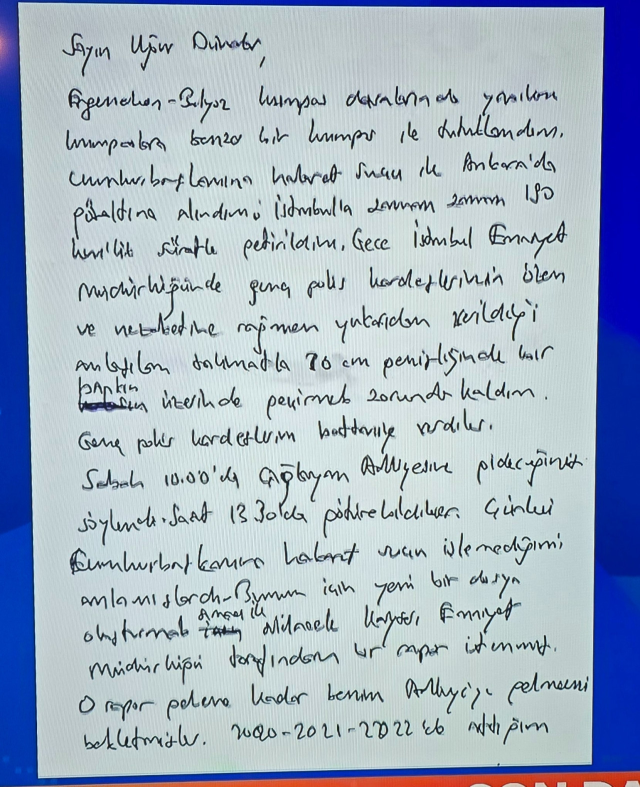 Sayın Uğur Dündar,
Ergenekon-Balyoz kumpas davalarında yaşanan
kumpaslara benzer bir kumpas ile tutuklandım.
Cumhurbaşkanına hakaret suçu ile Ankara'da
gözaltına alındım, İstanbul'a zaman zaman 190
km'lik süratle getirildim. Gece İstanbul Emniyet
Müdürlüğünde genç polis kardeşlerimin özen
ve nezaketine rağmen yukarıdan verildiği
anlaşılan talimatla 70 cm genişliğinde bir
bankın üzerinde geçirmek zorunda kaldım.
Genç polis kardeşlerim battaniye verdiler.
Sabah 10.00'da Çağlayan Adliyesine gideceğimiz
söylendi. Saat 13.30'da götürebildiler. Çünkü
Cumhurbaşkanına hakaret suçu işlemediğimi
anlamışlardı. Bunun için yeni bir dosya
oluşturmak amacı ile Kayseri Emniyet
Müdürlüğü tarafından bir rapor istenmiş.
O rapor gelene kadar benim Adliyeye gelmemi
bekletmişler. 2020-2021-2022'de attığım
SON DA